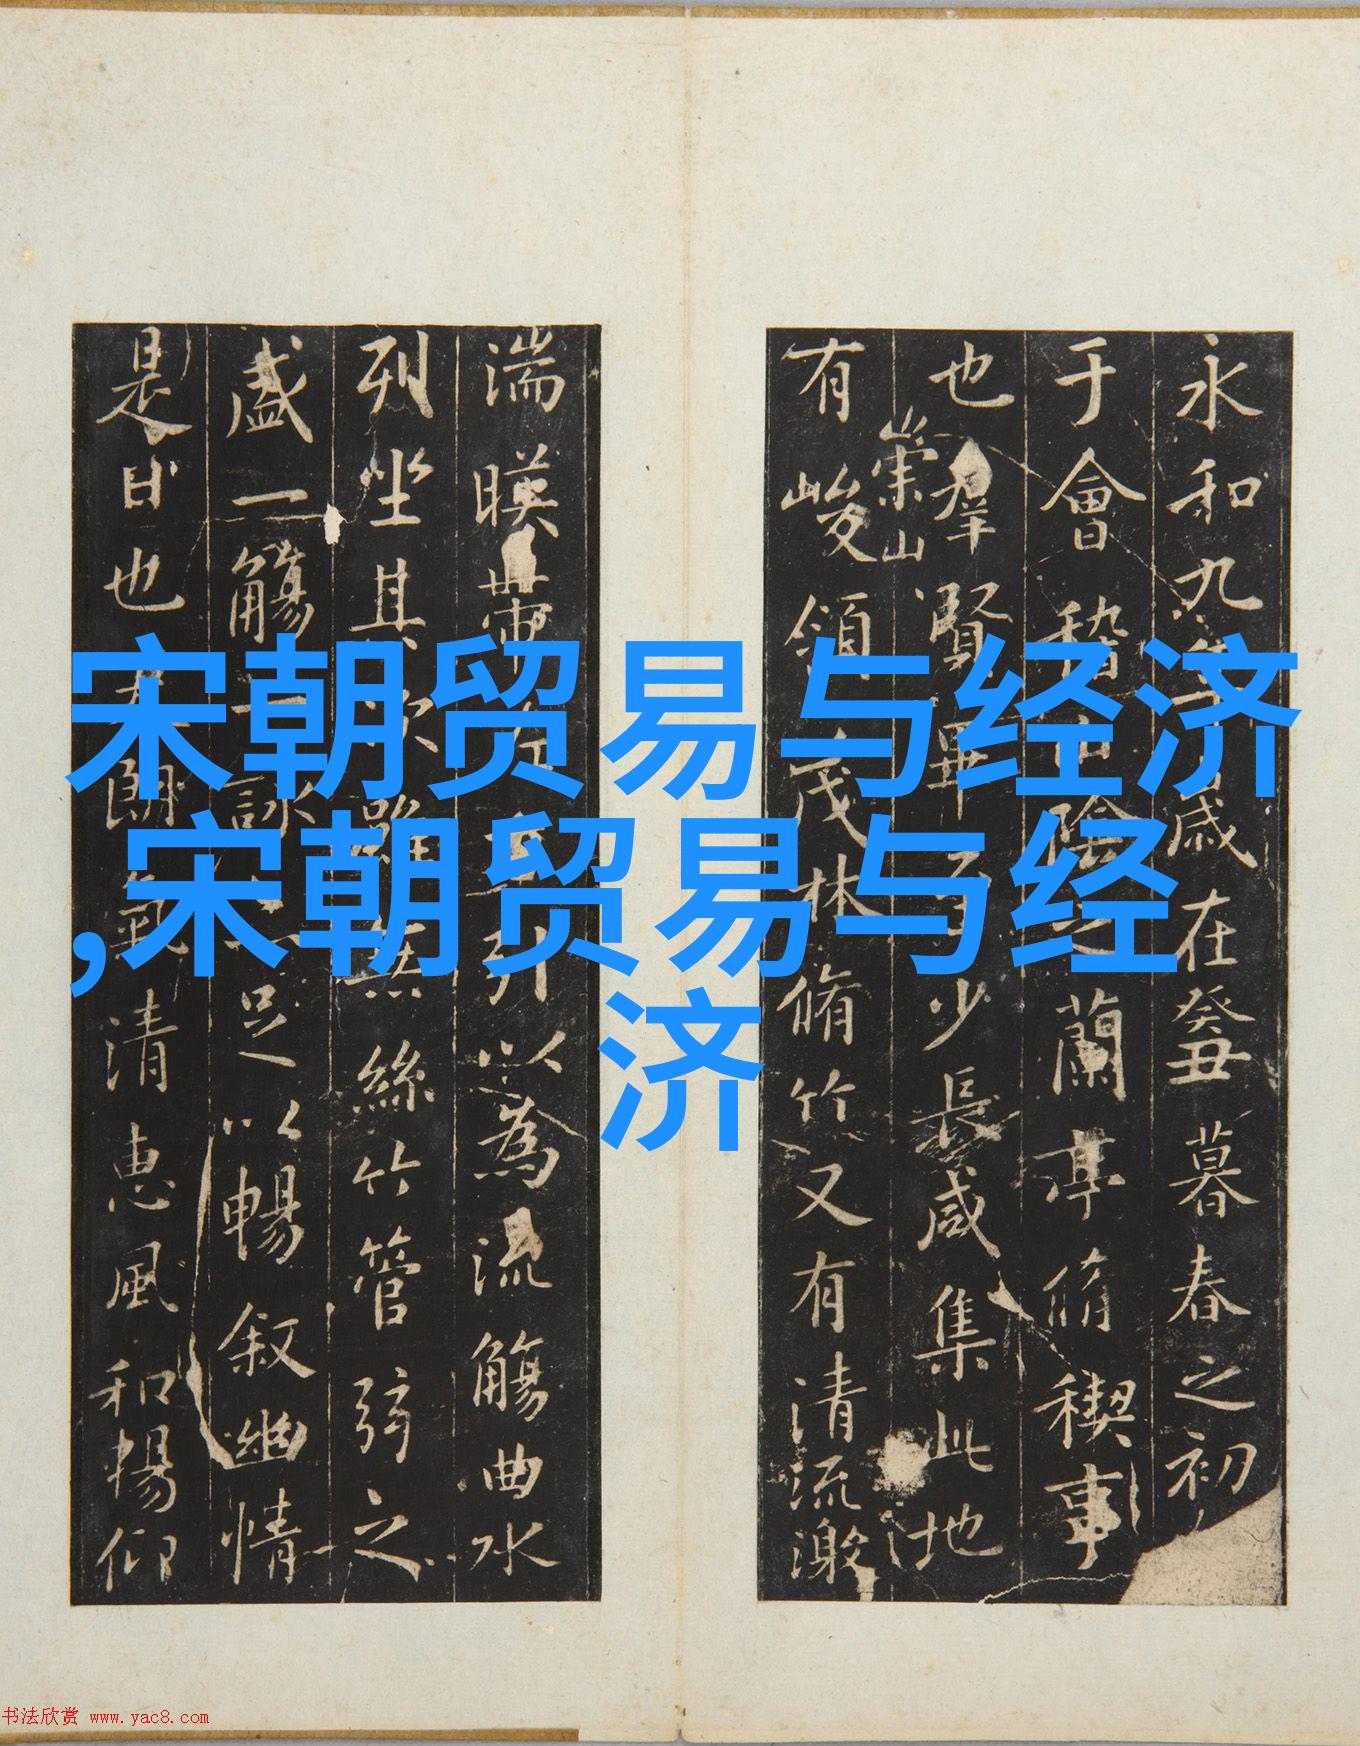 宋朝贸易与经济
,宋朝贸易与经
济
永和九年歲在癸丑暮春之初
于會稽山陰之蘭亭脩稧事
也羣賢畢至少長咸集此地
崇山
有峻領茂林脩竹又有清流激
湍暎帶左右引以為流觴曲水
列坐其次雖無絲竹管弦之
盛一觴一詠亦足以暢叙幽情
是日也天朗氣清惠風和暢仰
书法欣赏 www.yac8.com